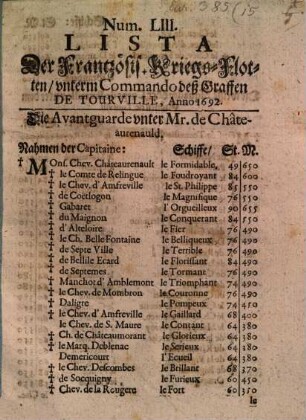 Num. LIII.
LISTA
Der Frantzösis. Kriegs-Flot-
ten/ unterm Commando deß Graffen
DE TOURVILLE, Anno 1692.
Die Avantguarde unter Mr. de Châte-
aurenauld,
Nahmen der Capitaine: Schiffe/ St. M.
† Mons. Chev. Châteaurenault le Formidable, 49 650
† le Comte de Relingue le Foudroyant 84 600
† le Chev. d'Amfreville le St. Philippe 85 550
† de Coetlogon le Magnifique 76 550
† Gabaret l'Orgueilleux 90 655
† du Maignon le Conquerant 84 550
† d'Alteloire le Fier 76 490
† le Ch. Belle Fontaine le Belliqueux 76 490
† de Septe Ville le Terrible 76 490
† de Bellile Ecard le Florissant 84 490
† de Septemes le Tormant 76 490
† Manchord'Amblemont le Triomphant 74 490
† le Chev. de Mombron le Couronne 76 490
† Daligre le Pompeux 74 450
† le Chev. d'Amfreville le Gaillard 68 400
le Chev. de S. Maure le Contant 64 380
† Ch. de Châteaumorant le Glorieux 64 380
† le Marq. Doblenac le Serieux 64 380
Demericourt l'Ecueil 64 380
† le Chev. Descombes le Brillant 68 370
† de Socquigny le Furieux 60 450
† Chev. de la Rougere le Fort 60 350
le